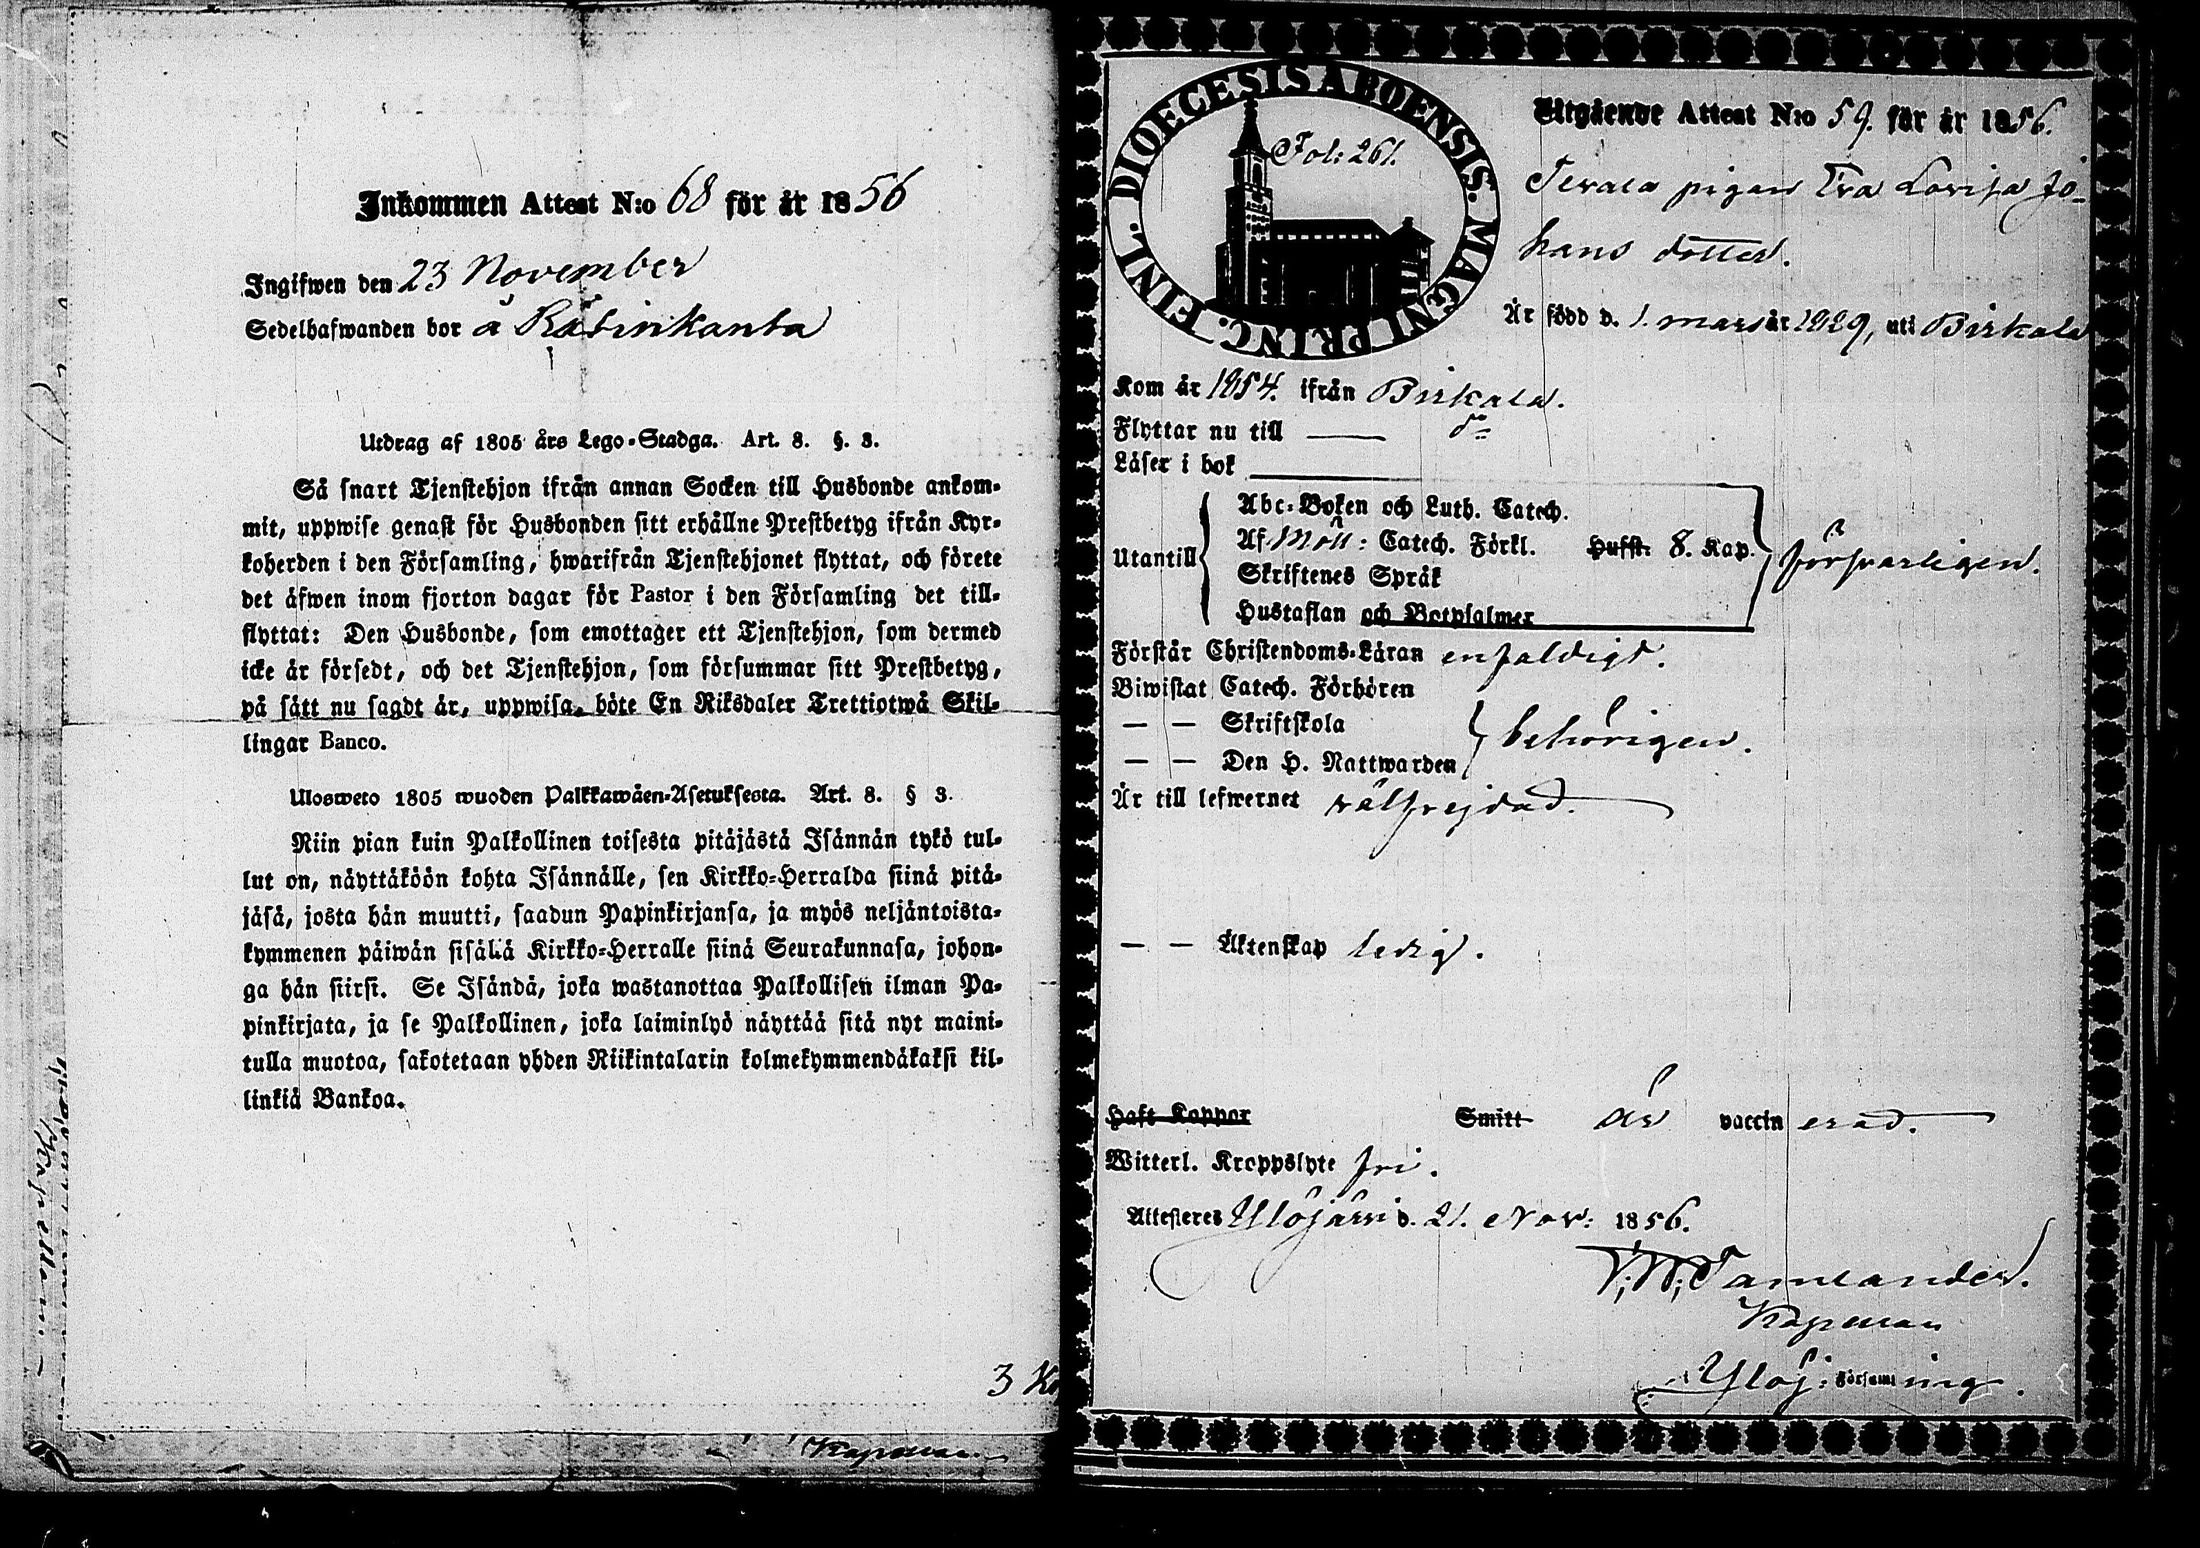 Inkommen Attest N:o 68 för år 1856
Ingifwen den 23 November
Sedelhafwanden bor å
Utdrag af 1805 års Lego-Stadga. Art. 8. §. 3.
Så snart Tjenstehjon ifrån annan Socken till Husbonde ankom-
mit, uppwise genast för Husbonden sitt erhållne Prestbetyg ifrån Kyr-
koherden i den Församling, hwarifrån Tjenstehjonet flyttat, och förete
det äfwen inom fjorton dagar för Pastor i den Församling det till-
flyttat: Den Husbonde, som emottager ett Tjenstehjon, som dermed
icke är försedt, och det Tjenstehjon, som försummar sitt Prestbetyg,
på sätt nu sagdt är, uppwisa, böte En Riksdaler Trettiotwå Skil-
lingar Banco.
Ulosweto 1805 wuoden Palkkawäen-Asetuksesta. Art. 8. § 3.
Niin pian kuin Palkollinen toisesta pitäjästä Isännän tykö tul-
lut on, näyttäköön kohta Isännälle, sen Kirkko-Herralda siinä pitä-
jäsä, josta hän muutti, saadun Papinkirjansa, ja myös neljäntoista-
kymmenen päiwän sisälä Kirkko-Herralle siinä Seurakunnasa, johon-
ga hän siirsi. Se Isändä, joka wastanottaa Palkollisen ilman Pa-
pinkirjata, ja se Palkollinen, joka laiminlyö näyttää sitä nyt maini-
tulla muotoa, sakotetaan yhden Riikintalarin kolmekymmendäkaksi kil-
linkiä Bankoa.
3 K
Kapellan
DIOECESIS ABOENSIS. MAGNI PRINC. FINL.
Fol: 261.
Utgående Attest N:o 59. för år 1856.
pigan Eva Lovisa Jo-
hans dotter.
Är född d. 1. mars år 1829, uti Birkala
Kom år 1854. ifrån Birkala.
Flyttar nu till — do
Läser i bok
Abc-Boken och Luth. Catech.
Utantill Af Möll: Catech. Förkl. Husst. 8. Kap. försvarligen.
Skriftenes Språk
Hustaflan och Botpsalmer
Förstår Christendoms-Läran enfaldigt.
Biwistat Catech. Förhören
— — Skriftskola behörigen.
— — Den H. Nattwarden
Är till lefwernet välfrejdad.
— — Äktenskap ledig.
Haft Koppor Smitt är vaccin erad.
Witterl. Kroppslyte fri.
Attesteras Ylöjärvi d. 21. Nov: 1856.
Tamelander.
Kapellan
Ylöj: Församl ing.